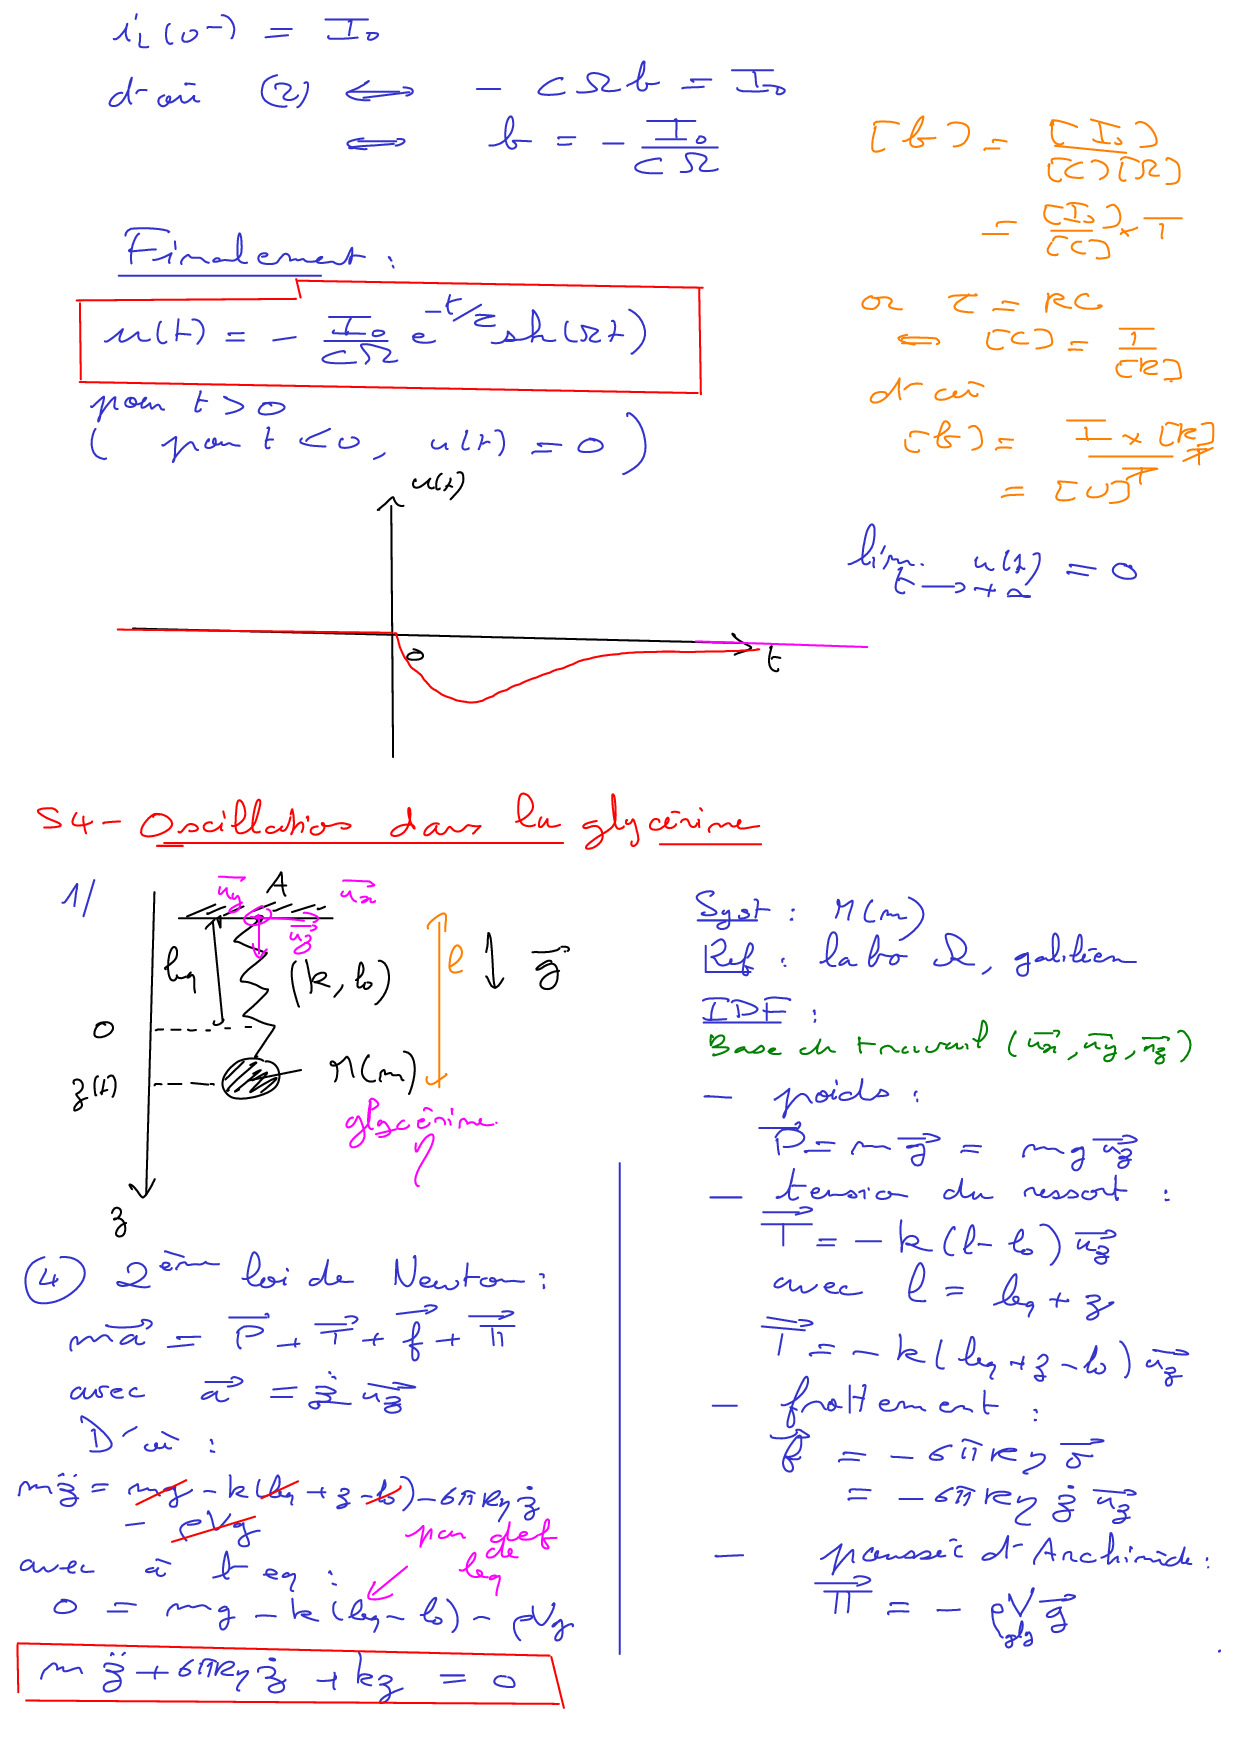 i_L(0⁻) = I₀
d'où (2) ⟺ - CΩb = I₀
⟺ b = - I₀/(CΩ)
[b] = [I₀]/([C][Ω])
= [I₀]/[C] × T
or τ = RC
⟺ [C] = T/[R]
d'où
[b] = I × [R]/T × T
= [U]
Finalement :
u(t) = - I₀/(CΩ) e^(-t/τ) sh(Ωt)
pour t > 0
( pour t < 0, u(t) = 0 )
lim u(t) = 0
t → +∞
u(t)
0
t
S4 - Oscillations dans la glycérine
1/
A
u⃗y
u⃗x
u⃗z
leq
(k, l₀)
l
g⃗
0
z(t)
M(m)
glycérine
η
z
Syst : M(m)
Ref : labo R, galiléen
IDF :
Base de travail (u⃗x, u⃗y, u⃗z)
- poids :
P⃗ = m g⃗ = mg u⃗z
- tension du ressort :
T⃗ = - k (l - l₀) u⃗z
avec l = leq + z
T⃗ = - k (leq + z - l₀) u⃗z
- frottement :
f⃗ = - 6πRη v⃗
= - 6πRη ż u⃗z
- poussée d'Archimède :
Π⃗ = - ρ_gly V g⃗
④ 2ème loi de Newton :
m a⃗ = P⃗ + T⃗ + f⃗ + Π⃗
avec a⃗ = z̈ u⃗z
D'où :
m z̈ = mg - k(leq + z - l₀) - 6πRη ż
- ρVg
avec à l'eq :
par def
de
leq
0 = mg - k(leq - l₀) - ρVg
m z̈ + 6πRη ż + kz = 0